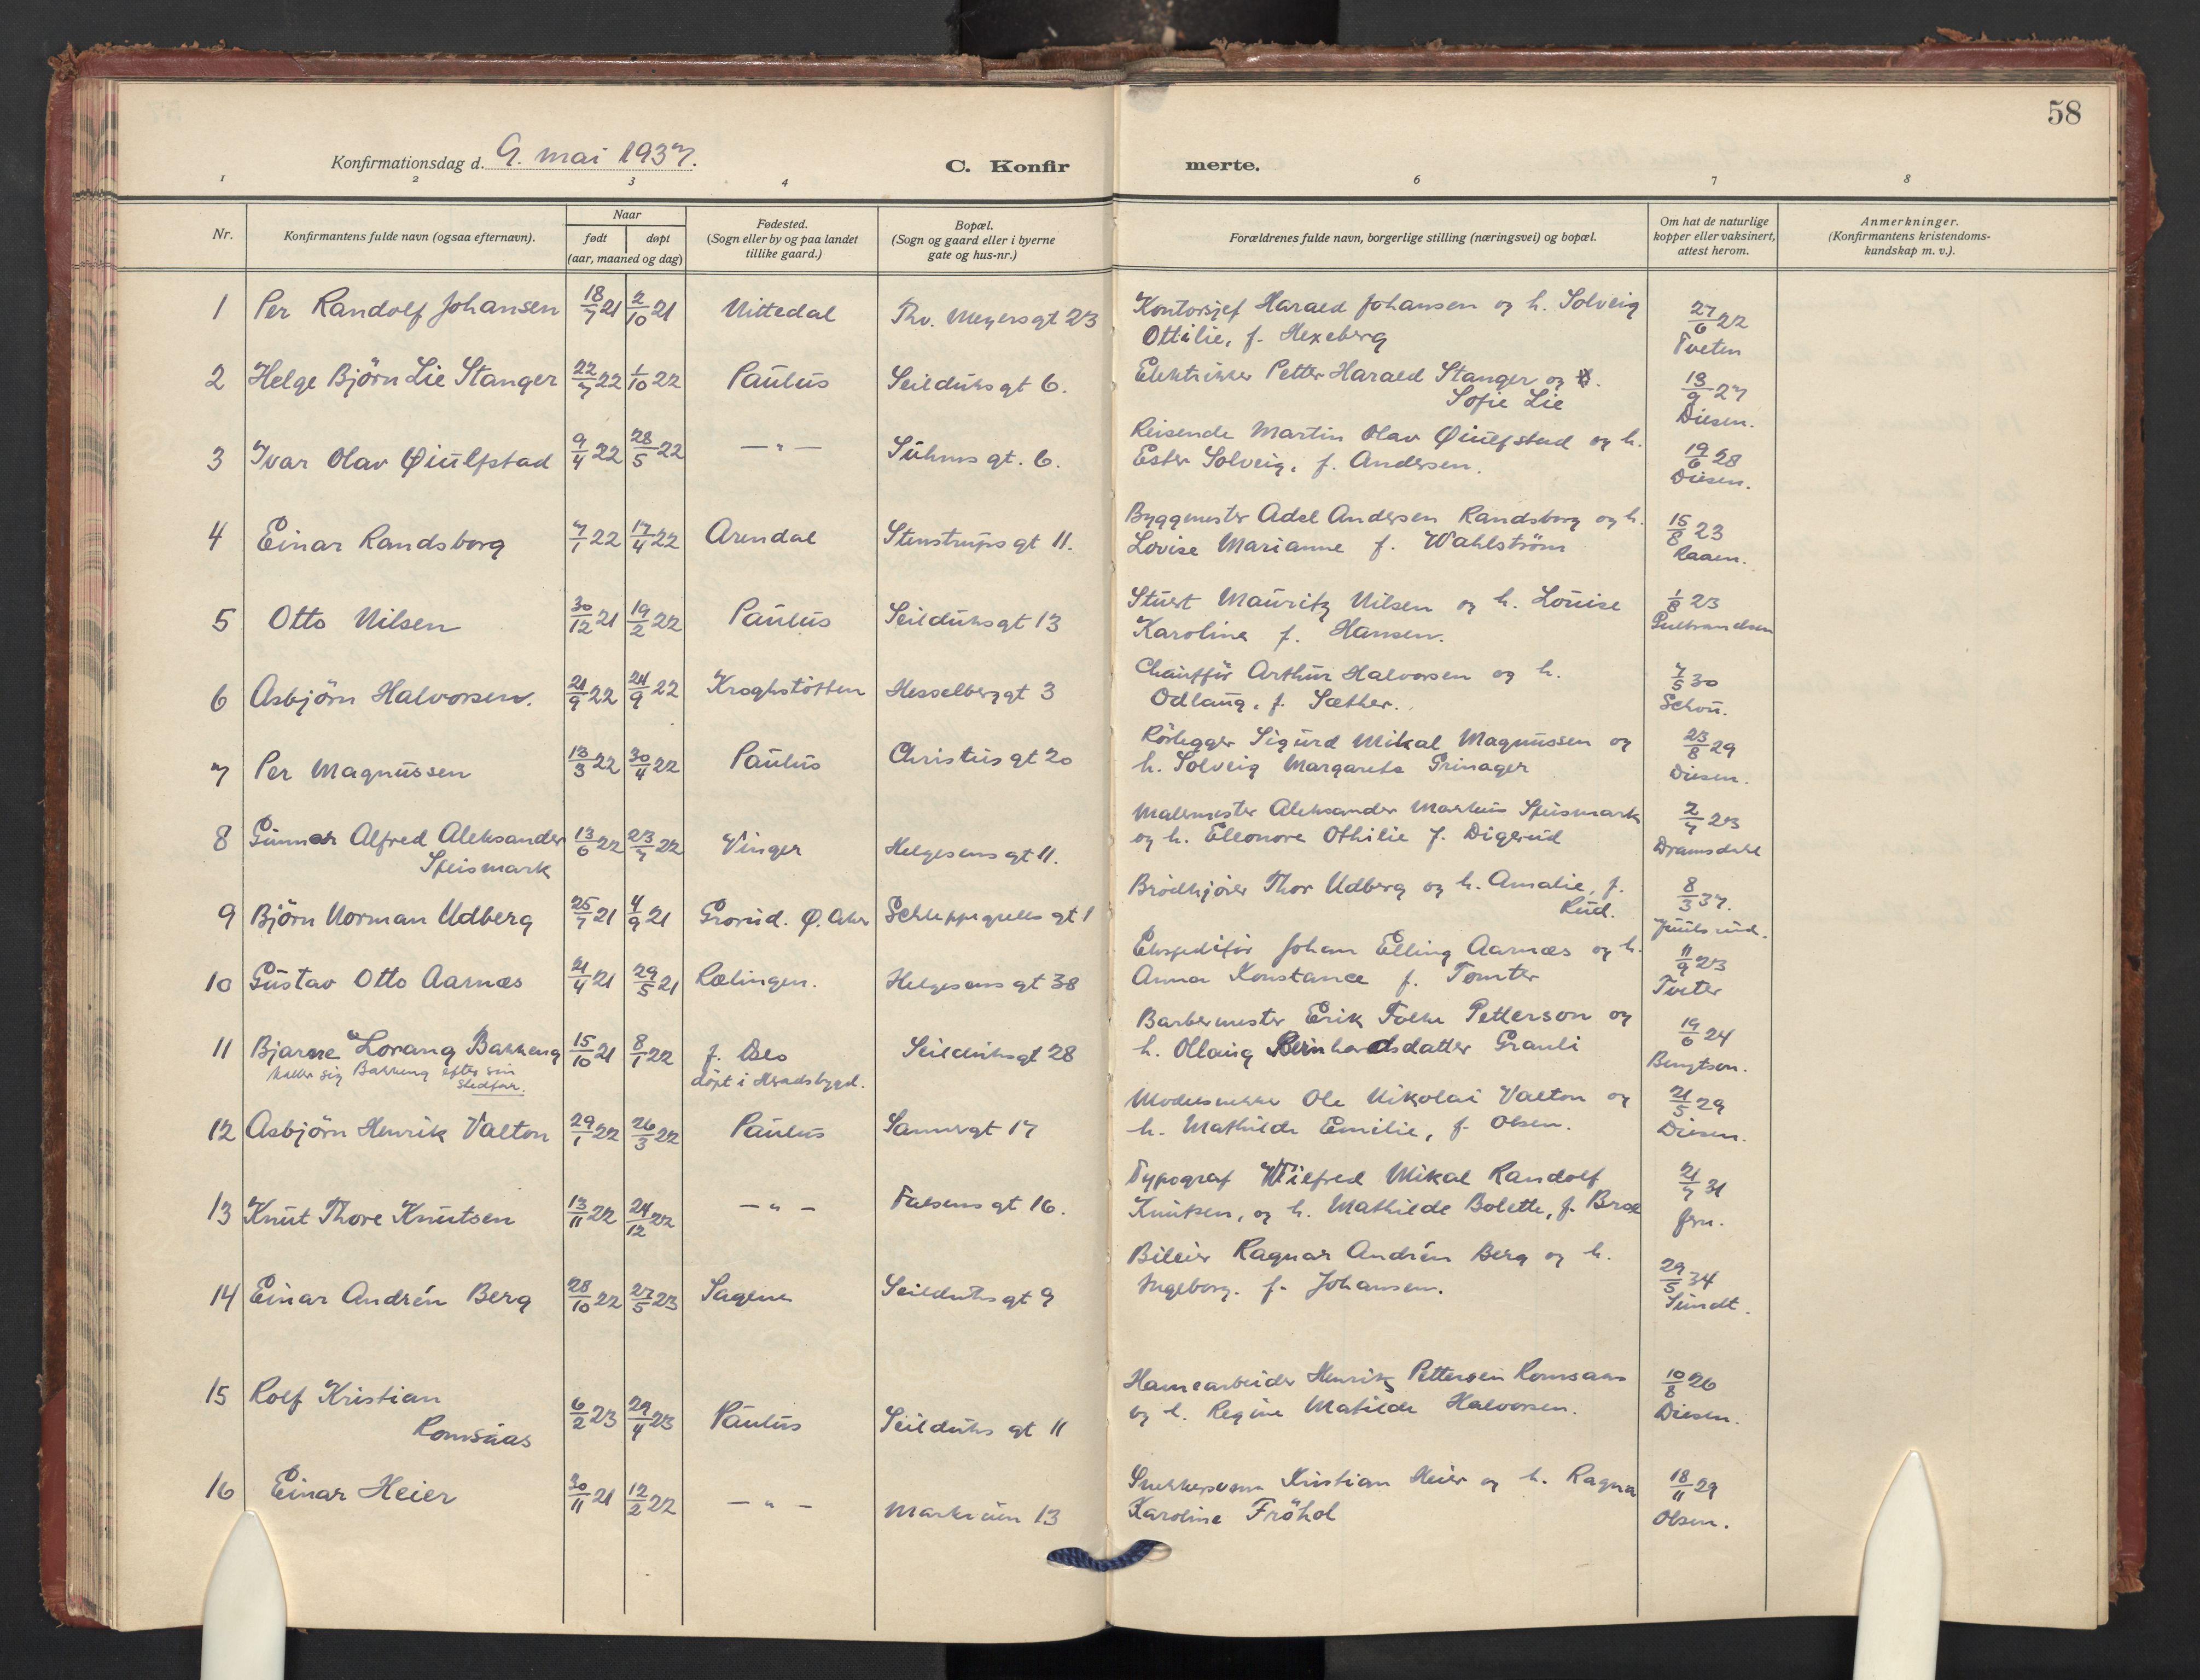 58
Konfirmationsdag d. 9. mai 1937.
C. Konfirmerte.
1 2 3 4 6 7 8
Nr.
Konfirmantens fulde navn (ogsaa efternavn).
Naar
født døpt
(aar, maaned og dag)
Fødested.
(Sogn eller by og paa landet
tillike gaard.)
Bopæl.
(Sogn og gaard eller i byerne
gate og hus-nr.)
Forældrenes fulde navn, borgerlige stilling (næringsvei) og bopæl.
Om hat de naturlige
kopper eller vaksinert,
attest herom.
Anmerkninger.
(Konfirmantens kristendoms-
kundskap m. v.).
1 Per Randolf Johansen 18/7 21 2/10 21 Nittedal Thv. Meyersgt 23
Kontorsjef Harald Johansen og h. Solveig
Ottilie, f. Hexeberg
27/6 22
Tveten
2 Helge Björn Lie Stanger 22/7 22 1/10 22 Paulus Seilduksgt 6.
Elektriker Petter Harald Stanger og h.
Sofie Lie
13/9 27
Diesen.
3 Ivar Olav Øiulfstad 9/4 22 28/5 22 — " — Suhms gt. 6.
Reisende Martin Olav Øiulfstad og h.
Ester Solveig, f. Andersen.
19/6 28
Diesen.
4 Einar Randsborg 7/1 22 17/4 22 Arendal Stenstrups gt 11.
Byggmester Adel Andersen Randsborg og h.
Lovise Marianne f. Wahlström
15/8 23
Raaen.
5 Otto Nilsen 30/12 21 19/2 22 Paulus Seilduksgt 13
Stuert Mauritz Nilsen og h. Louise
Karoline f. Hansen.
1/8 23
Gulbrandsen
6 Asbjörn Halvorsen. 21/9 22 24/9 22 Kroghstötten Hesselberg gt 3
Chaufför Arthur Halvorsen og h.
Odlaug, f. Sæther.
7/5 30
Schou.
7 Per Magnussen 13/3 22 30/4 22 Paulus Christies gt 20
Rörlegger Sigurd Mikal Magnussen og
h. Solveig Margarete Grinager
23/8 29
Diesen.
8 Gunnar Alfred Aleksander
Speismark
13/6 22 23/7 22 Vinger Helgesens gt 11.
Malermester Aleksander Markus Speismark
og h. Eleonore Othilie f. Digerud
2/7 23
Dramsdahl
9 Björn Norman Udberg 25/7 21 4/9 21 Grorud. Ø. Aker Schleppegrells gt 1
Brödkjörer Thor Udberg og h. Amalie, f.
Rud.
8/3 37.
10 Gustav Otto Aarnæs 21/4 21 29/5 21 Rælingen. Helgesens gt 38
Ekspeditör Johan Elling Aarnæs og h.
Anna Konstance f. Tomter
11/9 23
Tveter
11 Bjarne Lorang Bakkeng 15/10 21 8/1 22 f. Oslo
kaller sig Bakkeng efter sin
stedfar.
döpt i Hradsbygd.
Seilduksgt 28
Barbermester Erik Folke Petterson og
h. Ollaug Bernhardsdatter Grauli
19/6 24
Bengtson.
12 Asbjörn Henrik Valton 29/1 22 26/3 22 Paulus Sannergt 17
Modelsnekker Ole Nikolai Valton og
h. Mathilde Emilie, f. Olsen.
21/5 29
Diesen.
13 Knut Thore Knutsen 13/11 22 24/12 22 — " — Falsens gt 16.
Typograf Wilfred Mikal Randolf
Knutsen, og h. Mathilde Bolette, f. Brox
21/7 31
14 Einar Andrén Berg 28/10 22 27/5 23 Sagene Seilduks gt 9
Bileier Ragnar Andrén Berg og h.
Ingeborg. f. Johansen.
29/5 34
Sundt.
15 Rolf Kristian
Romsaas
6/2 23 29/4 23 Paulus Seilduks gt 11
Havnearbeider Henrik Pettersen Romsaas
og h. Regine Matilde Halvorsen.
10/8 26
Diesen.
16 Einar Heier 30/11 21 12/2 22 — " — Markveien 13
Snekkersvenn Kristian Heier og h. Ragna
Karoline Fröhol
18/11 29
Olsen.